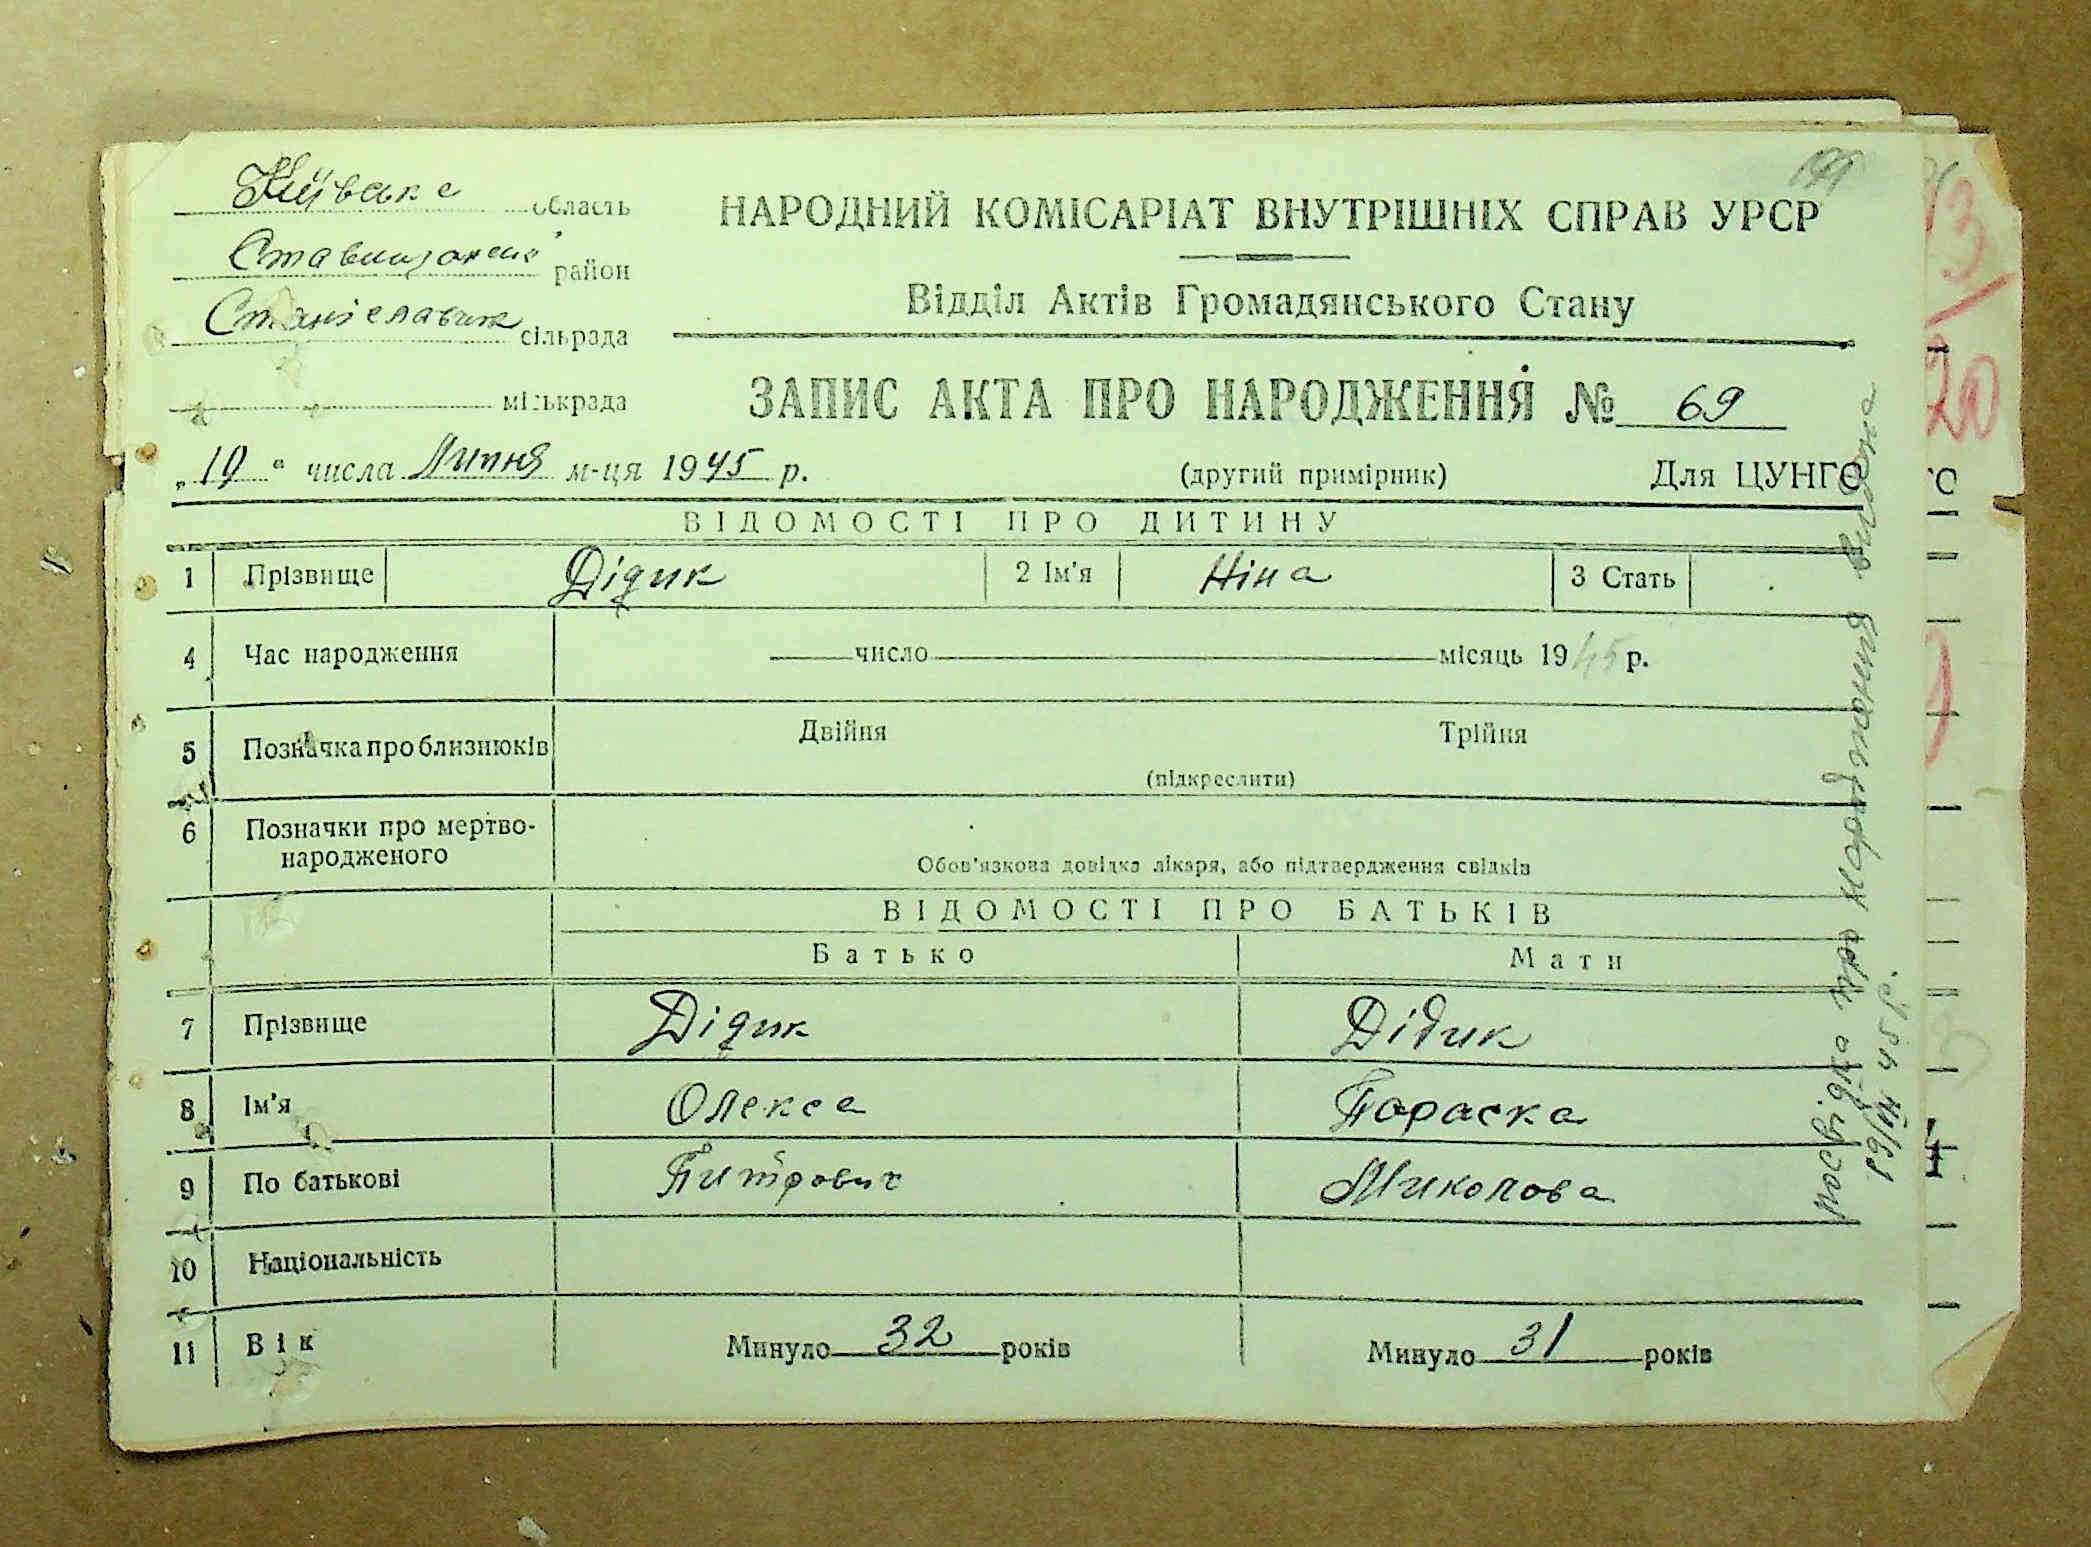 Київське область
НАРОДНИЙ КОМІСАРІАТ ВНУТРІШНІХ СПРАВ УРСР
район
Відділ Актів Громадянського Стану
сільрада
міськрада
ЗАПИС АКТА ПРО НАРОДЖЕННЯ № 69
„ 19 " числа Липня м-ця 1945 р.
(другий примірник)
Для ЦУНГО
ВІДОМОСТІ ПРО ДИТИНУ
1 Прізвище Дідик 2 Ім'я Ніна 3 Стать
4 Час народження число місяць 1945 р.
5 Позначка про близнюків Двійня Трійня
(підкреслити)
6 Позначки про мертво-
народженого
Обов'язкова довідка лікаря, або підтвердження свідків
ВІДОМОСТІ ПРО БАТЬКІВ
Батько Мати
7 Прізвище Дідик Дідик
8 Ім'я Олекса Параска
9 По батькові Питрович Миколова
10 Національність
11 Вік Минуло 32 років Минуло 31 років
посвідка про народження видана
19/VII 45 р.